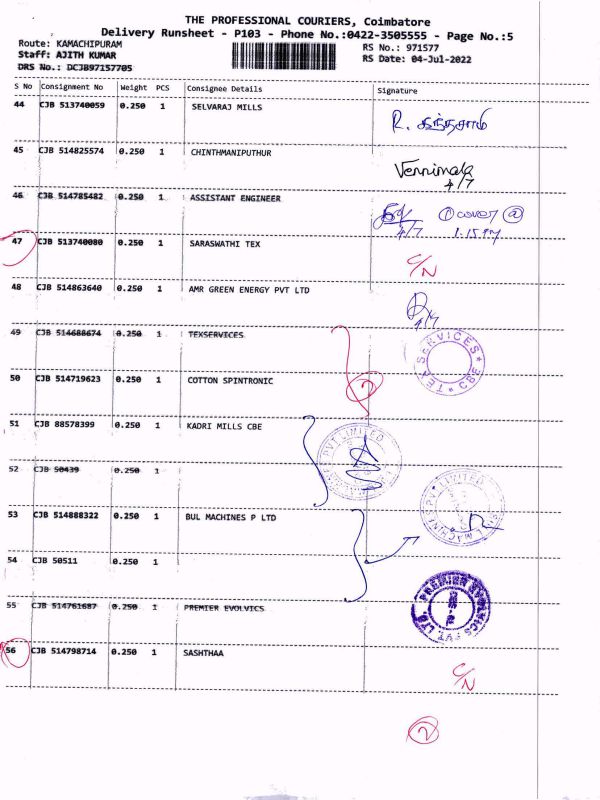 THE PROFESSIONAL COURIERS, Coimbatore
Delivery Runsheet - P103 - Phone No.:0422-3505555 - Page No.:5
Route: KAMACHIPURAM
RS No.: 971577
Staff: AJITH KUMAR
RS Date: 04-Jul-2022
DRS No.: DCJB97157705
S No Consignment No Weight PCS Consignee Details Signature
44 CJB 513740059 0.250 1 SELVARAJ MILLS
R. கந்தசாமி
45 CJB 514825574 0.250 1 CHINTHMANIPUTHUR
Vennimala
4/7
46 CJB 514785482 0.250 1 ASSISTANT ENGINEER
4/7
① cover @
1.15 PM
47 CJB 513740080 0.250 1 SARASWATHI TEX
C/N
48 CJB 514863640 0.250 1 AMR GREEN ENERGY PVT LTD
4/7
49 CJB 514688674 0.250 1 TEXSERVICES
TEX SERVICES * CBE *
50 CJB 514719623 0.250 1 COTTON SPINTRONIC
2
51 CJB 88578399 0.250 1 KADRI MILLS CBE
PVT LIMITED
52 CJB 50439 0.250 1
53 CJB 514888322 0.250 1 BUL MACHINES P LTD
LIMITED
54 CJB 50511 0.250 1
55 CJB 514761687 0.250 1 PREMIER EVOLVICS
PREMIER EVOLVICS PVT. LTD.
56 CJB 514798714 0.250 1 SASHTHAA
C/N
2